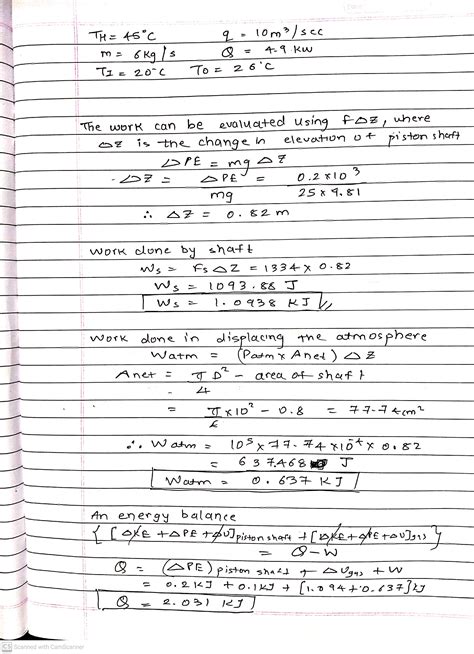 TH = 45°C q = 10m³/sec
m = 6kg/s Q = 4.9 kw
TI = 20°C To = 26°C
The work can be evaluated using FΔZ, where
ΔZ is the change in elevation of piston shaft
ΔPE = mg ΔZ
ΔZ = ΔPE / mg = 0.2×10³ / 25×9.81
∴ ΔZ = 0.82 m
Work done by shaft
Ws = Fs ΔZ = 1334 × 0.82
Ws = 1093.88 J
Ws = 1.0938 KJ
Work done in displacing the atmosphere
Watm = (Patm × Anet) ΔZ
Anet = π D² / 4 - area of shaft
= π × 10² - 0.8 = 77.74 cm²
∴ Watm = 10⁵ × 77.74 × 10⁻⁴ × 0.82
= 637.468 J
Watm = 0.637 KJ
An energy balance
{ [ΔKE + ΔPE + ΔU] piston shaft + [ΔKE + ΔPE + ΔU] gas }
= Q - W
Q = (ΔPE) piston shaft + ΔUgas + W
= 0.2 KJ + 0.1 KJ + [1.094 + 0.637] KJ
Q = 2.031 KJ
CS Scanned with CamScanner